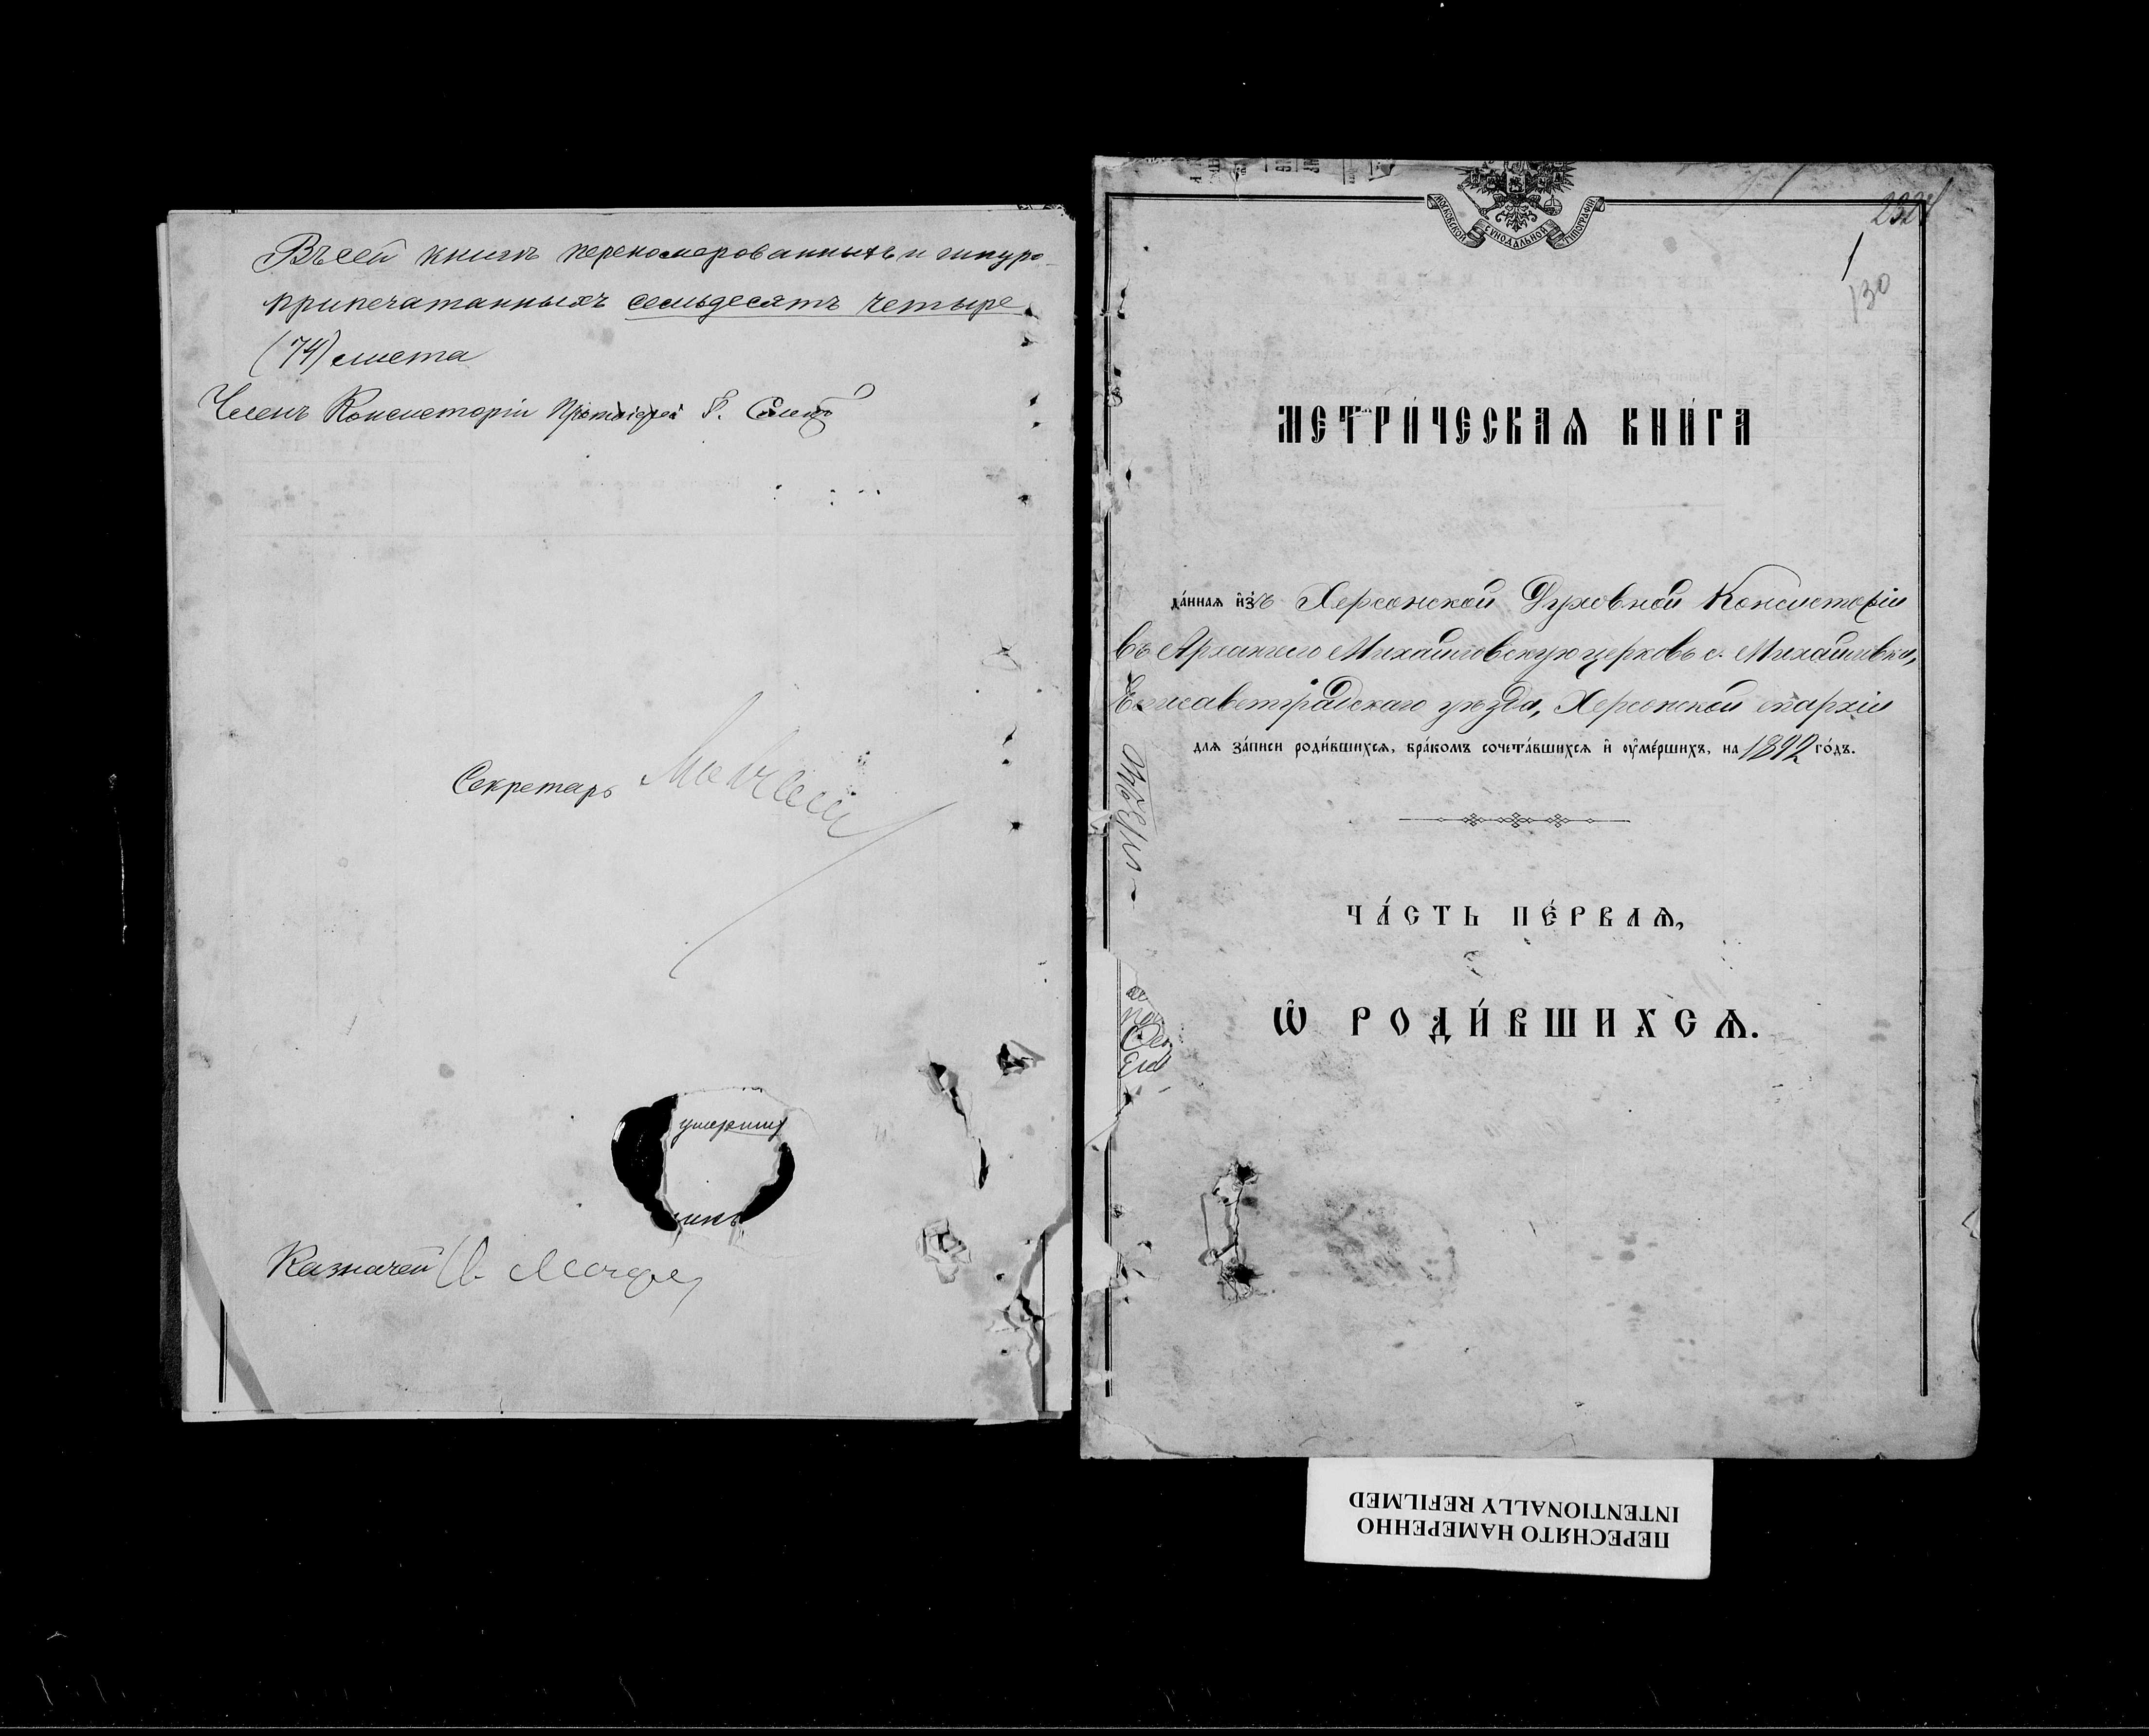 Въ сей книгѣ переномерованныхъ и шнуро-
припечатанныхъ семьдесятъ четыре
(74) листа
Членъ Консисторіи Протоіерей
Секретарь
умерших
Казначей
МОСКОВСКОЙ СѴНОДАЛЬНОЙ ТИПОГРАФІИ
1
130
МЕТРИ́ЧЕСКАѦ КНИ́ГА
да́нная и҆зъ Херсонской Духовной Консисторіи
въ Архангело Михайловскую церковь с. Михайловки,
Елисаветградскаго уѣзда, Херсонской епархіи
для за́писи роди́вшихсѧ, бра́комъ сочета́вшихсѧ и҆ ᲂу҆ме́ршихъ, на 1892 го́дъ.
ЧА́СТЬ ПЕ́РВАѦ,
Ѡ҆ РОДИ́ВШИХСѦ.
ПЕРЕСНЯТО НАМЕРЕННО
INTENTIONALLY REFILMED